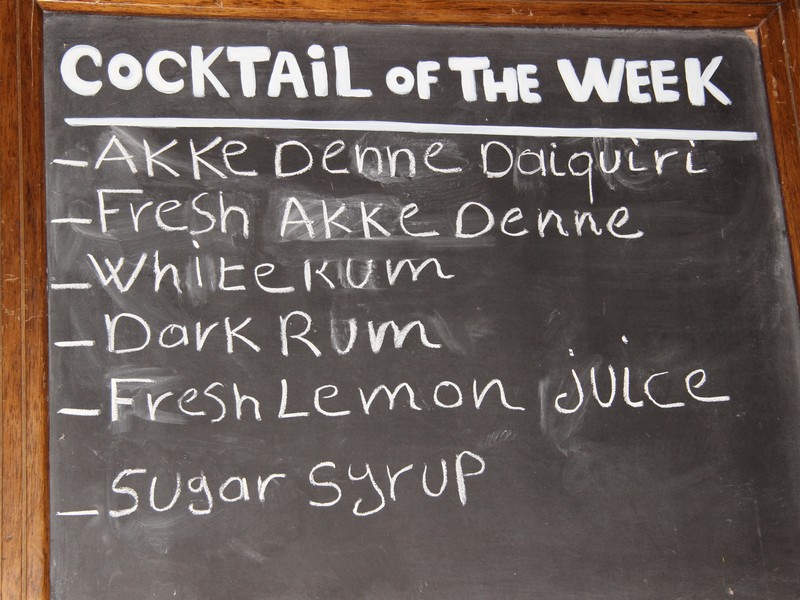 COCKTAiL OF THE WEEK
- AKKe Denne Daiquiri
- Fresh AKKe Denne
- White Rum
- Dark Rum
- Fresh Lemon juice
- Sugar Syrup